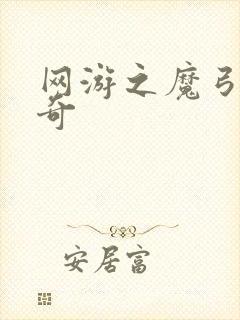 网游之魔弓
奇
安居富